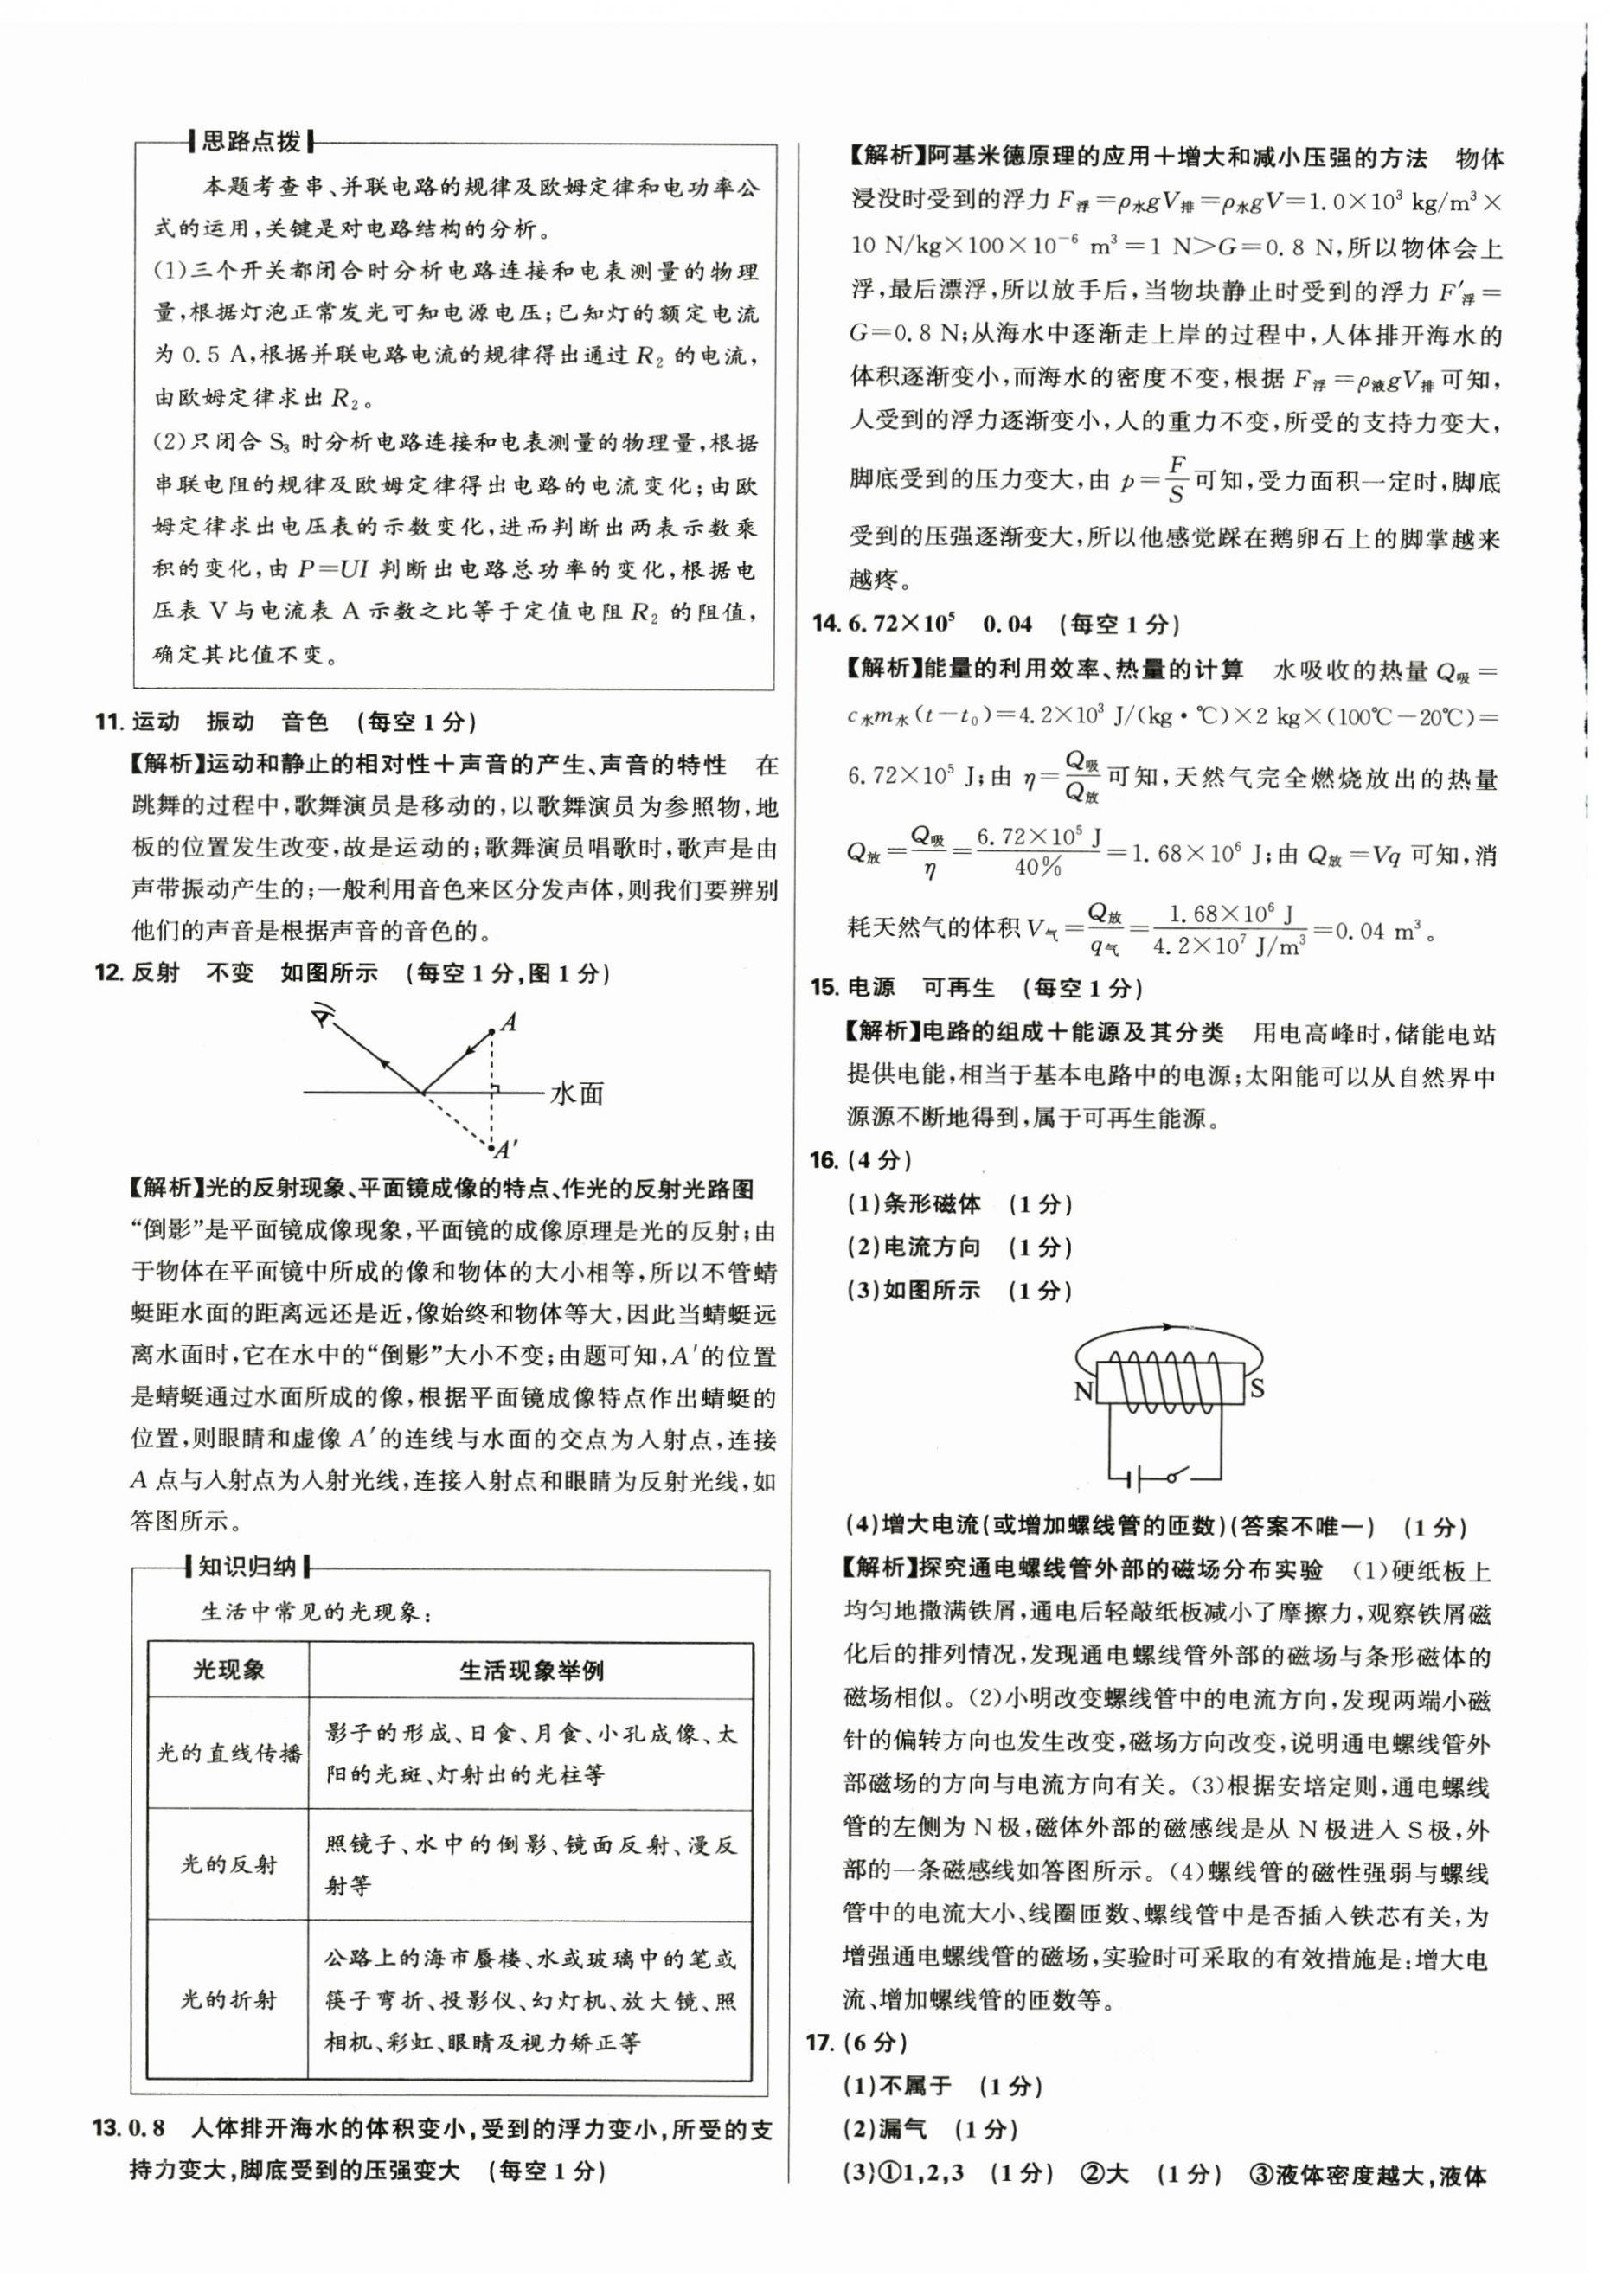 思路点拨
本题考查串、并联电路的规律及欧姆定律和电功率公
式的运用,关键是对电路结构的分析。
(1)三个开关都闭合时分析电路连接和电表测量的物理
量,根据灯泡正常发光可知电源电压;已知灯的额定电流
为 0.5 A,根据并联电路电流的规律得出通过 R₂ 的电流,
由欧姆定律求出 R₂。
(2)只闭合 S₃ 时分析电路连接和电表测量的物理量,根据
串联电阻的规律及欧姆定律得出电路的电流变化;由欧
姆定律求出电压表的示数变化,进而判断出两表示数乘
积的变化,由 P=UI 判断出电路总功率的变化,根据电
压表 V 与电流表 A 示数之比等于定值电阻 R₂ 的阻值,
确定其比值不变。
11. 运动 振动 音色 (每空1分)
【解析】运动和静止的相对性+声音的产生、声音的特性 在
跳舞的过程中,歌舞演员是移动的,以歌舞演员为参照物,地
板的位置发生改变,故是运动的;歌舞演员唱歌时,歌声是由
声带振动产生的;一般利用音色来区分发声体,则我们要辨别
他们的声音是根据声音的音色的。
12. 反射 不变 如图所示 (每空1分,图1分)
A
水面
A′
【解析】光的反射现象、平面镜成像的特点、作光的反射光路图
“倒影”是平面镜成像现象,平面镜的成像原理是光的反射;由
于物体在平面镜中所成的像和物体的大小相等,所以不管蜻
蜓距水面的距离远还是近,像始终和物体等大,因此当蜻蜓远
离水面时,它在水中的“倒影”大小不变;由题可知,A′的位置
是蜻蜓通过水面所成的像,根据平面镜成像特点作出蜻蜓的
位置,则眼睛和虚像 A′的连线与水面的交点为入射点,连接
A 点与入射点为入射光线,连接入射点和眼睛为反射光线,如
答图所示。
知识归纳
生活中常见的光现象:
光现象 生活现象举例
光的直线传播 影子的形成、日食、月食、小孔成像、太
阳的光斑、灯射出的光柱等
光的反射 照镜子、水中的倒影、镜面反射、漫反
射等
光的折射 公路上的海市蜃楼、水或玻璃中的笔或
筷子弯折、投影仪、幻灯机、放大镜、照
相机、彩虹、眼睛及视力矫正等
13. 0.8 人体排开海水的体积变小,受到的浮力变小,所受的支
持力变大,脚底受到的压强变大 (每空1分)
【解析】阿基米德原理的应用+增大和减小压强的方法 物体
浸没时受到的浮力 F浮=ρ水gV排=ρ水gV=1.0×10³ kg/m³×
10 N/kg×100×10⁻⁶ m³=1 N>G=0.8 N,所以物体会上
浮,最后漂浮,所以放手后,当物块静止时受到的浮力 F′浮=
G=0.8 N;从海水中逐渐走上岸的过程中,人体排开海水的
体积逐渐变小,而海水的密度不变,根据 F浮=ρ液gV排可知,
人受到的浮力逐渐变小,人的重力不变,所受的支持力变大,
脚底受到的压力变大,由 p=F/S可知,受力面积一定时,脚底
受到的压强逐渐变大,所以他感觉踩在鹅卵石上的脚掌越来
越疼。
14. 6.72×10⁵ 0.04 (每空1分)
【解析】能量的利用效率、热量的计算 水吸收的热量 Q吸=
c水m水(t-t₀)=4.2×10³ J/(kg·℃)×2 kg×(100℃-20℃)=
6.72×10⁵ J;由 η=Q吸/Q放可知,天然气完全燃烧放出的热量
Q放=Q吸/η=6.72×10⁵ J/40%=1.68×10⁶ J;由 Q放=Vq 可知,消
耗天然气的体积V气=Q放/q气=1.68×10⁶ J/4.2×10⁷ J/m³=0.04 m³。
15. 电源 可再生 (每空1分)
【解析】电路的组成+能源及其分类 用电高峰时,储能电站
提供电能,相当于基本电路中的电源;太阳能可以从自然界中
源源不断地得到,属于可再生能源。
16. (4分)
(1)条形磁体 (1分)
(2)电流方向 (1分)
(3)如图所示 (1分)
N S
(4)增大电流(或增加螺线管的匝数)(答案不唯一) (1分)
【解析】探究通电螺线管外部的磁场分布实验 (1)硬纸板上
均匀地撒满铁屑,通电后轻敲纸板减小了摩擦力,观察铁屑磁
化后的排列情况,发现通电螺线管外部的磁场与条形磁体的
磁场相似。(2)小明改变螺线管中的电流方向,发现两端小磁
针的偏转方向也发生改变,磁场方向改变,说明通电螺线管外
部磁场的方向与电流方向有关。(3)根据安培定则,通电螺线
管的左侧为 N 极,磁体外部的磁感线是从 N 极进入 S 极,外
部的一条磁感线如答图所示。(4)螺线管的磁性强弱与螺线
管中的电流大小、线圈匝数、螺线管中是否插入铁芯有关,为
增强通电螺线管的磁场,实验时可采取的有效措施是:增大电
流、增加螺线管的匝数等。
17. (6分)
(1)不属于 (1分)
(2)漏气 (1分)
(3)①1,2,3 (1分) ②大 (1分) ③液体密度越大,液体